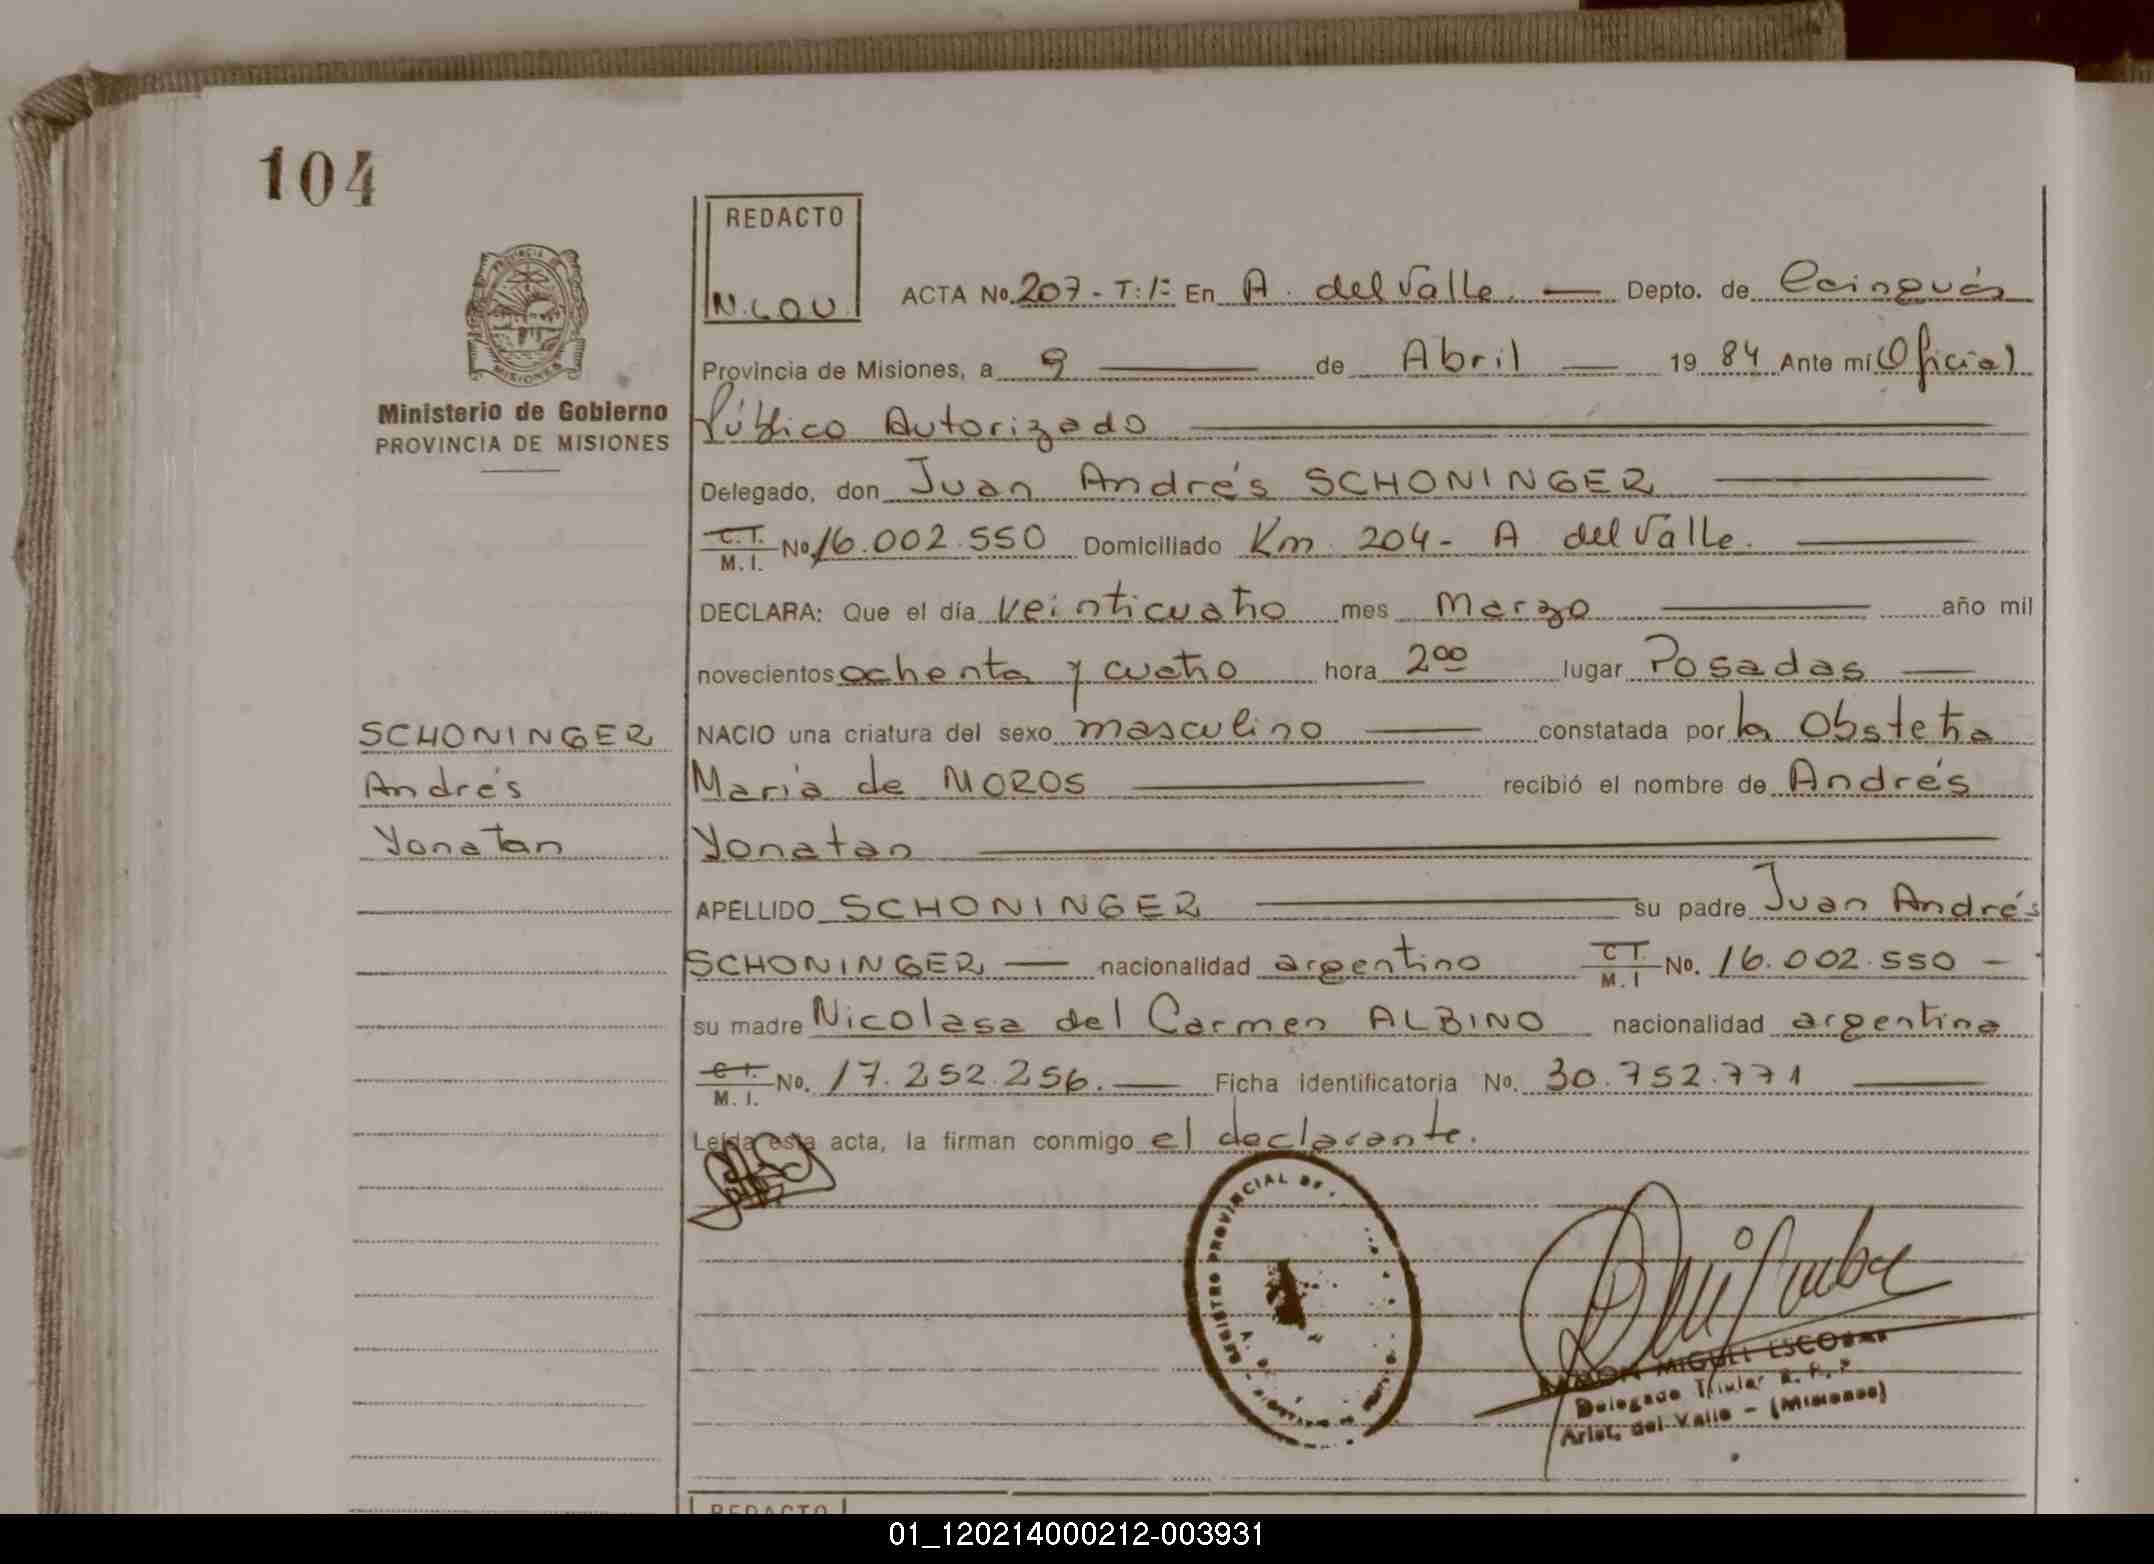 104
REDACTO
N. LOU
PROVINCIA DE
MISIONES
Ministerio de Gobierno
PROVINCIA DE MISIONES
ACTA No. 207 - T: 1= En A. del Valle. — Depto. de Cainguás
Provincia de Misiones, a 9 — de Abril — 19 84 Ante mí Oficial
Público Autorizado
Delegado, don Juan Andrés SCHONINGER
C. T. M. I. No 16.002.550 Domiciliado Km 204 - A del Valle.
DECLARA: Que el día veinticuatro mes Marzo — año mil
novecientos ochenta y cuatro hora 200 lugar Posadas —
NACIO una criatura del sexo masculino — constatada por la Obstetra
María de MOROS — recibió el nombre de Andrés
Yonatan
APELLIDO SCHONINGER — su padre Juan Andrés
SCHONINGER — nacionalidad argentino C T. M. I No. 16.002.550 -
su madre Nicolasa del Carmen ALBINO nacionalidad argentina
C T. M. I. No. 17.252.256. — Ficha identificatoria No. 30.752.771 —
Leída esta acta, la firman conmigo el declarante.
SCHONINGER
Andrés
Yonatan
REGISTRO PROVINCIAL DE
RAMON MIGUEL ESCOBAR
Delegado Titular R. P. P
Arist. del Valle - (Misiones)
REDACTO
01_120214000212-003931